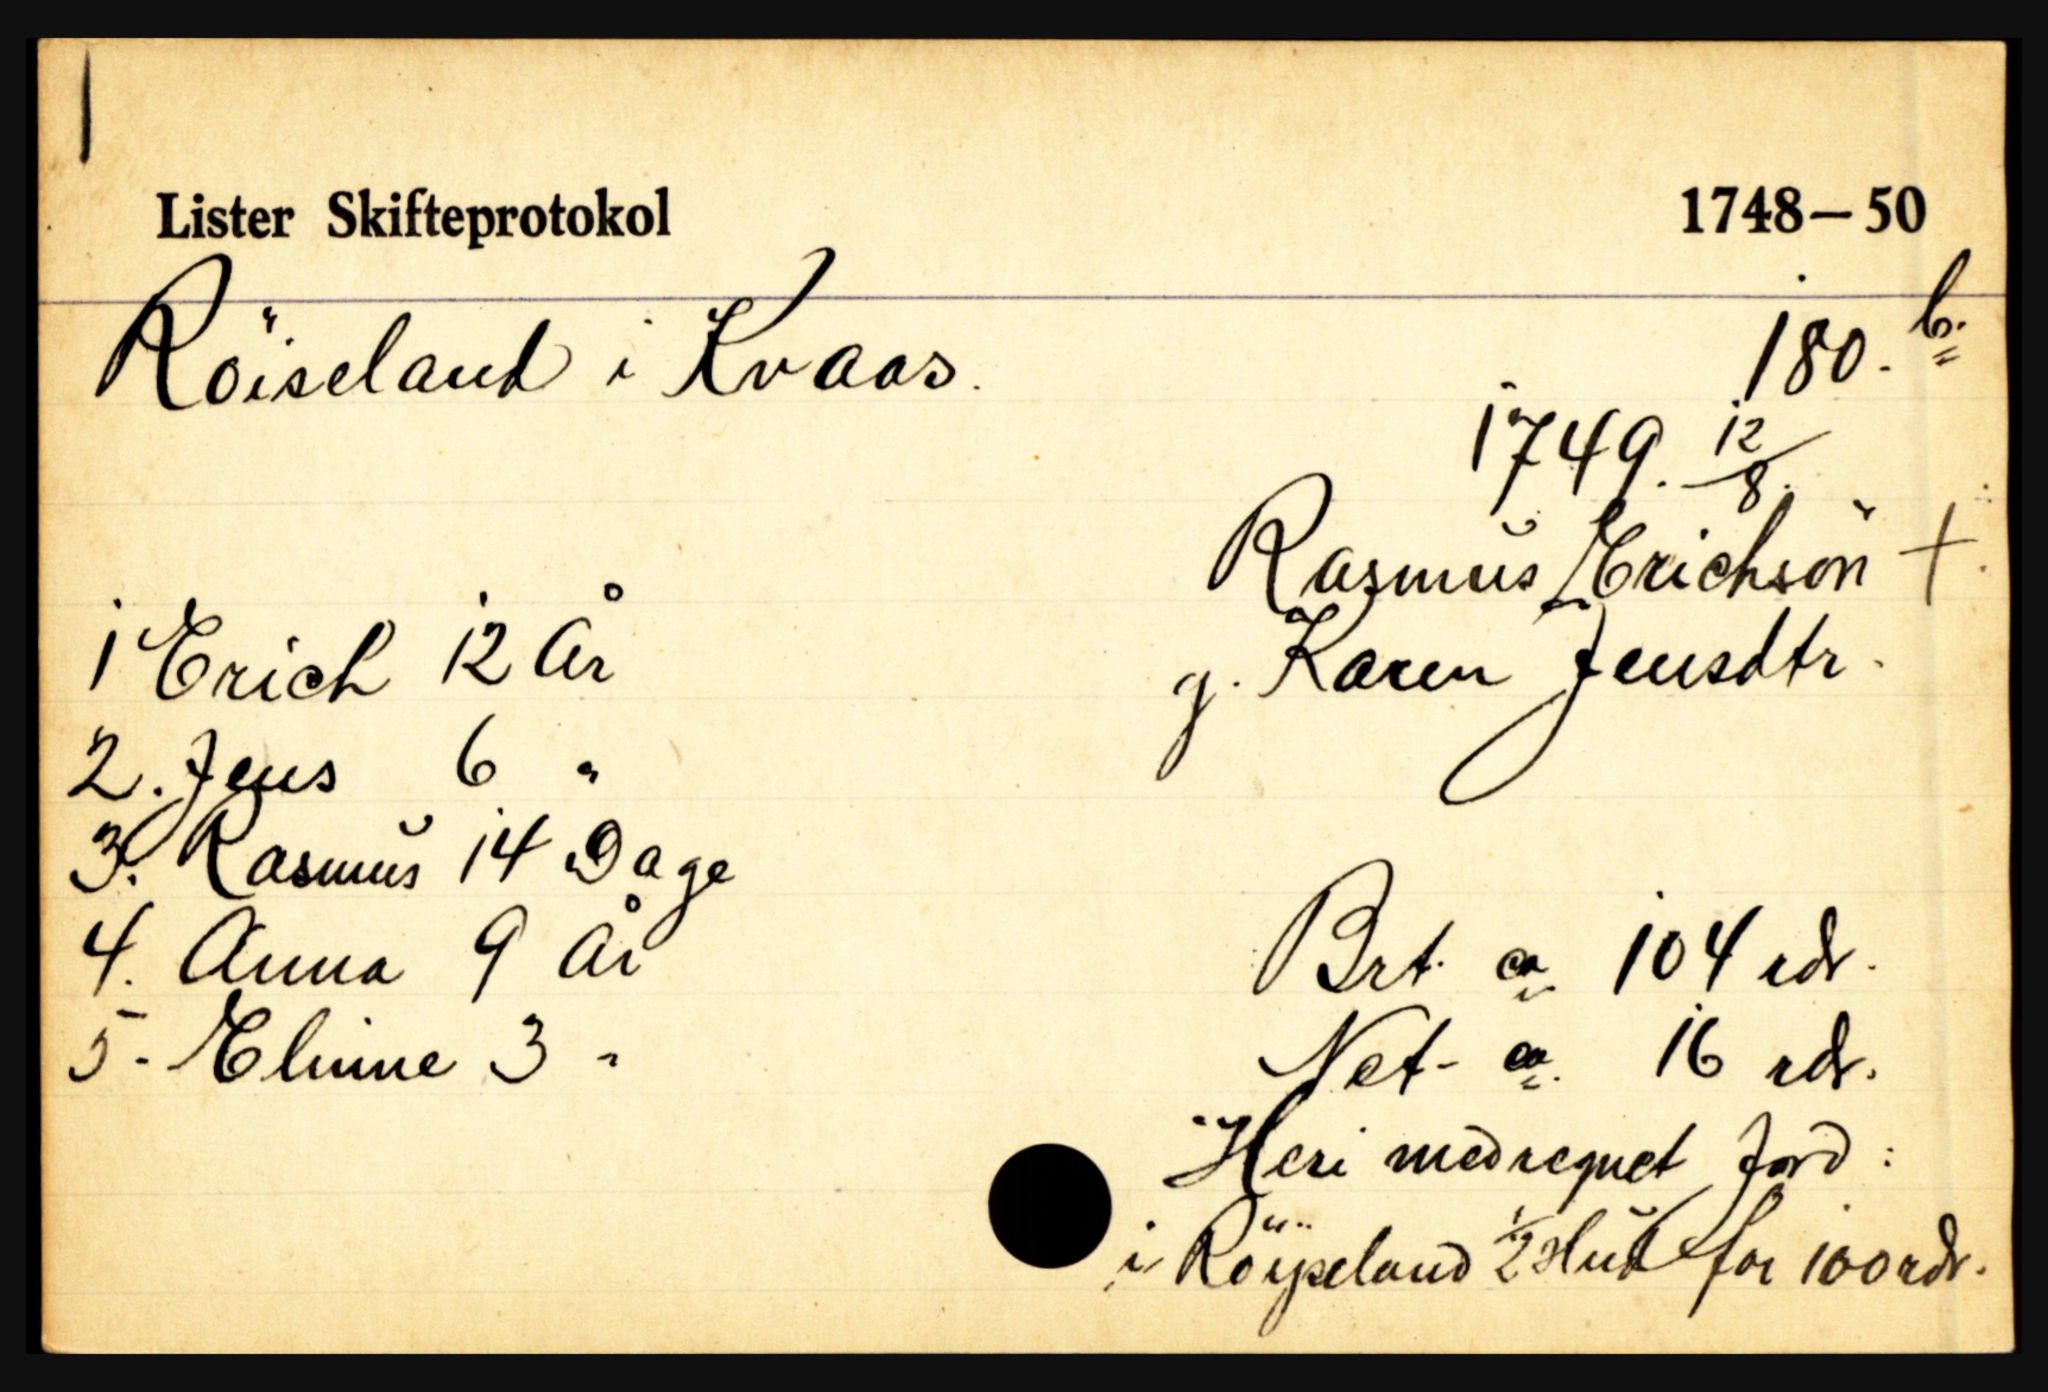 Lister Skifteprotokol 1748–50
Röiseland i Kvaas. 180. b.
1749. 12/8.
Rasmus Erichsön +
g. Karen Jensdtr.
1 Erich 12 År
2. Jens 6 "
3. Rasmus 14 Dage
4. Anna 9 År
5- Elinne 3 "
Brt. ca. 104 rdr.
Net- ca. 16 rdr.
Heri medregnet Jord:
i Röyseland 1/2 Hud for 100 rdr.